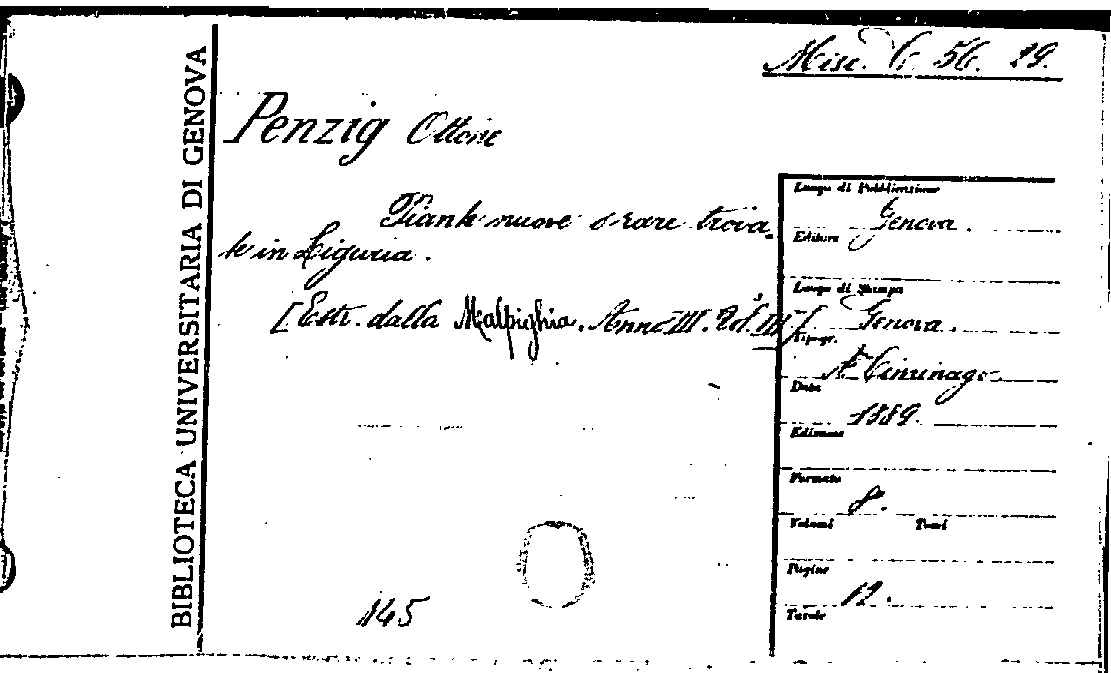 Misc. C. 56. 29.
BIBLIOTECA UNIVERSITARIA DI GENOVA
Penzig Ottone
Piante nuove o rare trova-
te in Liguria.
[Estr. dalla Malpighia. Anno III. Vol. III]
145
Luogo di Pubblicazione
Genova.
Editore
Luogo di Stampa
Genova.
Tipogr.
Ciminago
Data
1889.
Edizione
Formato
8.
Volumi Tomi
Pagine
12.
Tavole